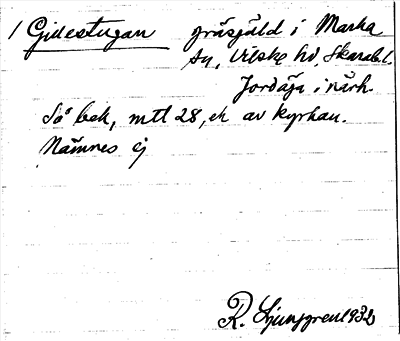 1 Gillestugan gräsgäld i Marka
sn, Vilske hd, Skarab.l.
Jordäga i närh.
Så bek, mtl 28, ch av kyrkan.
Nämnes ej
R. Ljunggren 1932